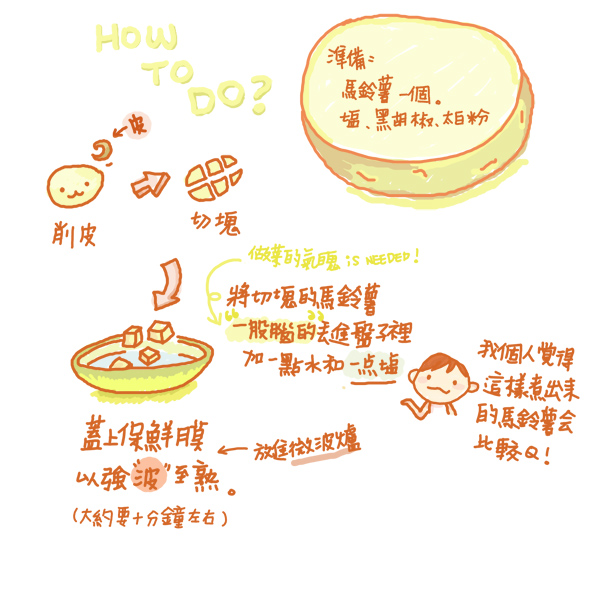 HOW
TO
DO?
準備:
馬鈴薯一個。
塩、黑胡椒、太白粉
皮
削皮
切塊
做菜的氣魄 is NEEDED!
將切塊的馬鈴薯
"一股腦"的丟進盤子裡
加一點水和一点塩
我個人覺得
這樣煮出來
的馬鈴薯會
比較Q!
蓋上保鮮膜
以強"波"至熟。
放進微波爐
(大約要十分鐘左右)